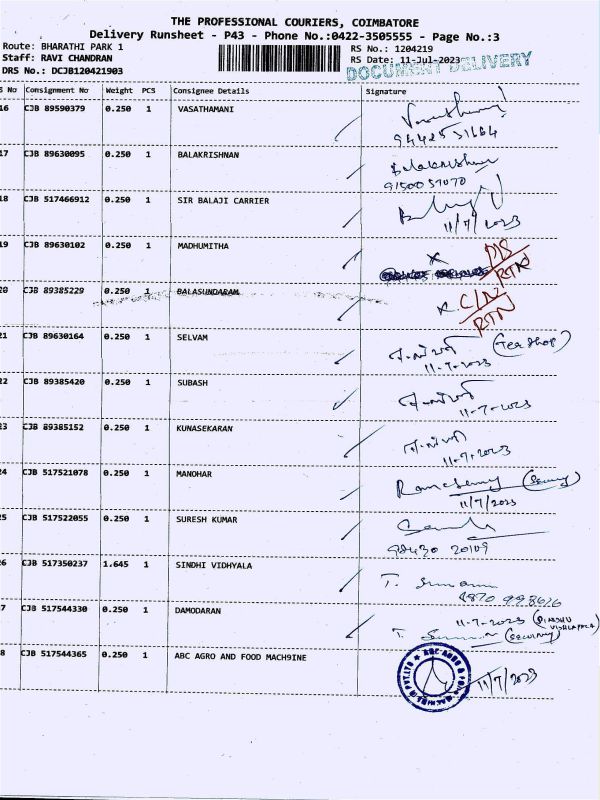 THE PROFESSIONAL COURIERS, COIMBATORE
Delivery Runsheet - P43 - Phone No.:0422-3505555 - Page No.:3
Route: BHARATHI PARK 1
RS No.: 1204219
Staff: RAVI CHANDRAN
RS Date: 11-Jul-2023
DRS No.: DCJB120421903
DOCUMENT DELIVERY
S No Consignment No Weight PCS Consignee Details Signature
16 CJB 89590379 0.250 1 VASATHAMANI
17 CJB 89630095 0.250 1 BALAKRISHNAN
Balakrishnan
9150057070
18 CJB 517466912 0.250 1 SIR BALAJI CARRIER
11/7/2023
19 CJB 89630102 0.250 1 MADHUMITHA
RTN
20 CJB 89385229 0.250 1 BALASUNDARAM
RTN
21 CJB 89630164 0.250 1 SELVAM
(Tea shop)
11-7-2023
22 CJB 89385420 0.250 1 SUBASH
11-7-2023
23 CJB 89385152 0.250 1 KUNASEKARAN
11-7-2023
24 CJB 517521078 0.250 1 MANOHAR
11/7/2023
25 CJB 517522055 0.250 1 SURESH KUMAR
98430 20109
26 CJB 517350237 1.645 1 SINDHI VIDHYALA
27 CJB 517544330 0.250 1 DAMODARAN
11-7-2023
(Security)
28 CJB 517544365 0.250 1 ABC AGRO AND FOOD MACH9INE
11/7/2023